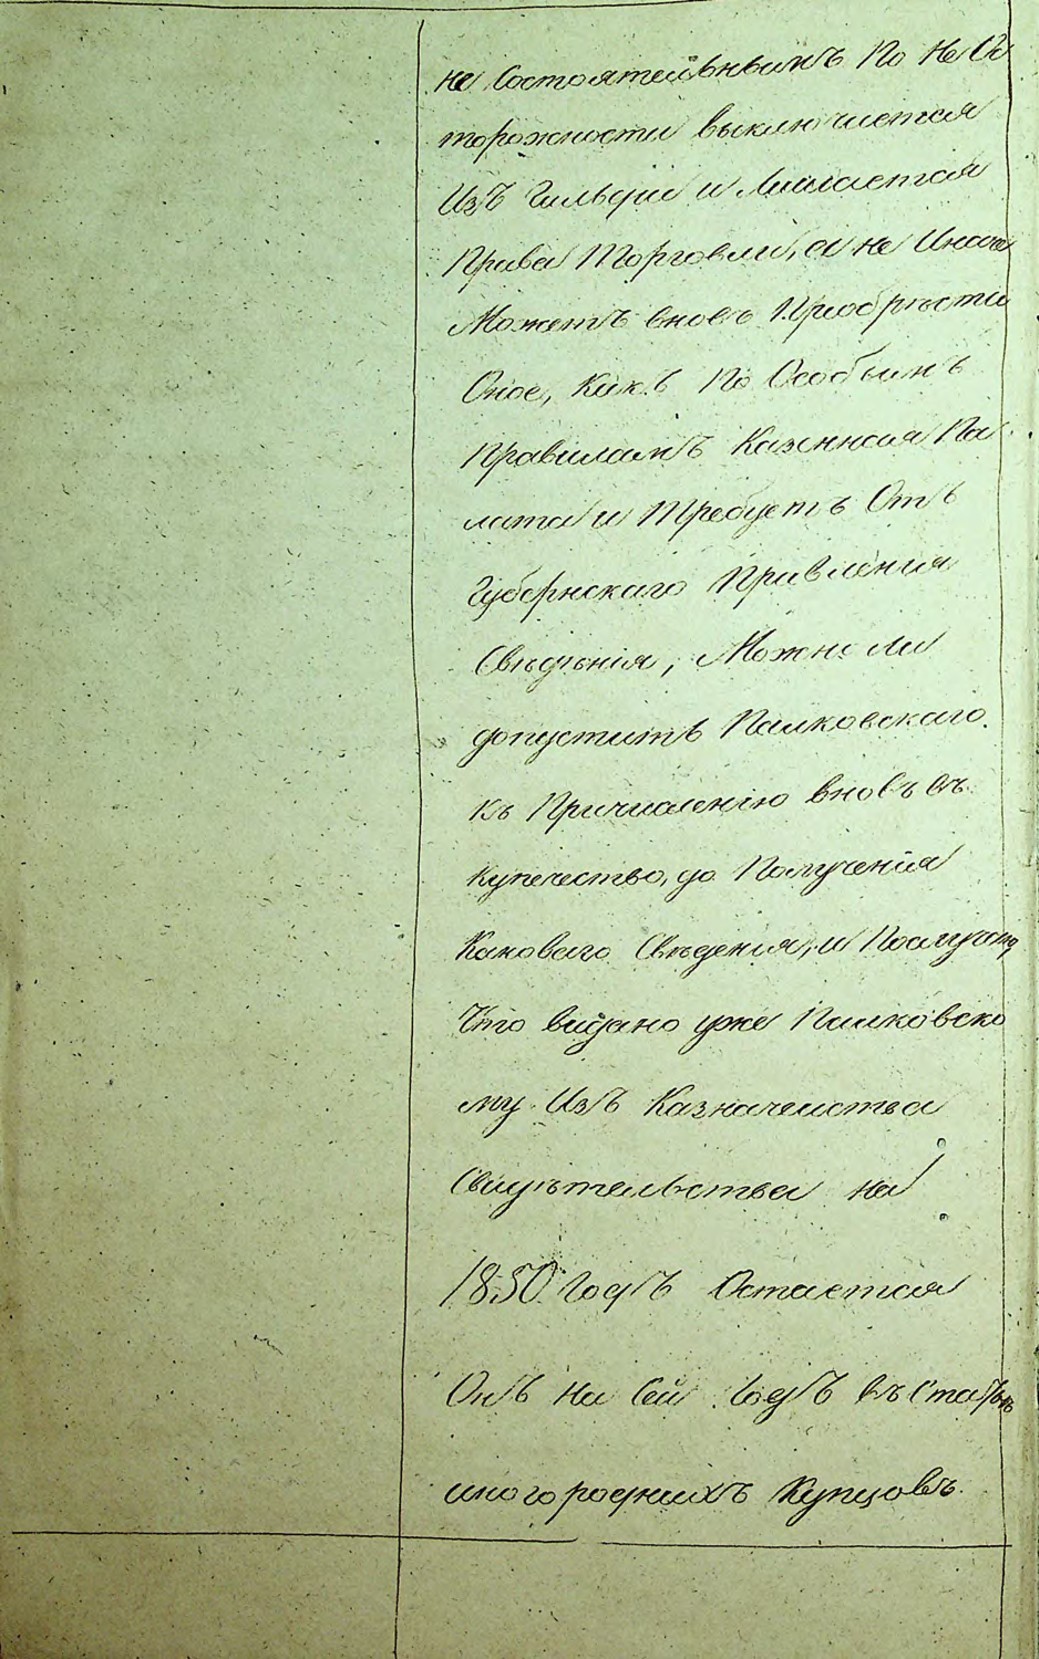 не Состоятельнымъ По Не Ос
торожности выключается
Изъ Гильдіи и Лишается
Права Торговли, а не Иначе
Можетъ вновь Пріобрѣсти
Оное, Какъ По Особымъ
Правиламъ Казенная Па
лата и Требуетъ Отъ
Губернскаго Правленія
Свѣдѣнія, Можно ли
допустить Палковскаго
къ Причисленію вновь въ
купечество, до Полученія
Каковаго Свѣденія, и Получ
Что выдано уже Палковско
му Изъ Казначейства
Свидѣтельства на
1850 Годъ Остается
Онъ На Сей Годъ въ
иногородныхъ Купцовъ.